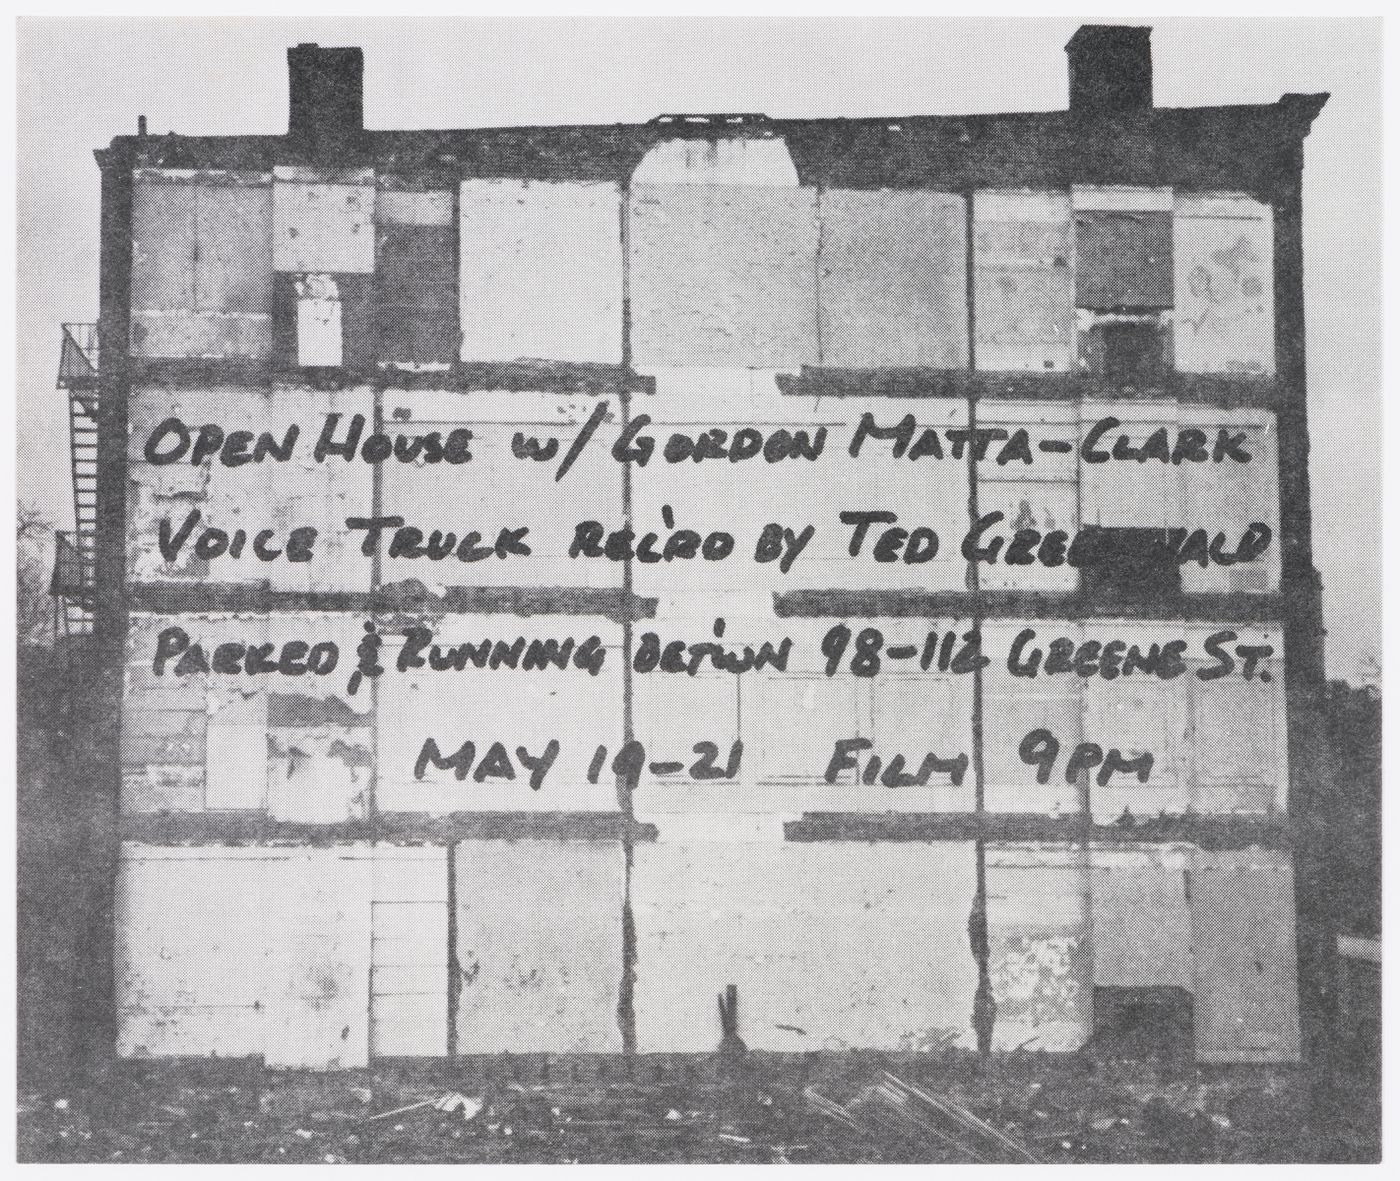 OPEN HOUSE w/ GORDON MATTA-CLARK
VOICE TRUCK REC'RD BY TED GREENWALD
PARKED & RUNNING BET'WN 98-112 GREENE ST.
MAY 19-21 FILM 9PM